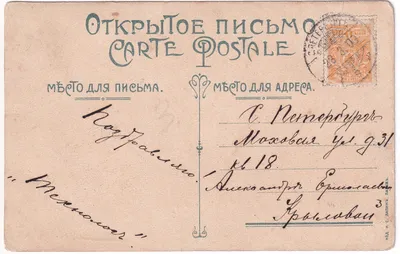 ОТКРЫТОЕ ПИСЬМО
CARTE POSTALE
МѢСТО ДЛЯ ПИСЬМА.
МѢСТО ДЛЯ АДРЕСА.
Поздравляю!
"Технологъ."
С. Петербургъ
Моховая ул. д. 31
кв 18.
Александрѣ Ермолаевнѣ
Крыловой